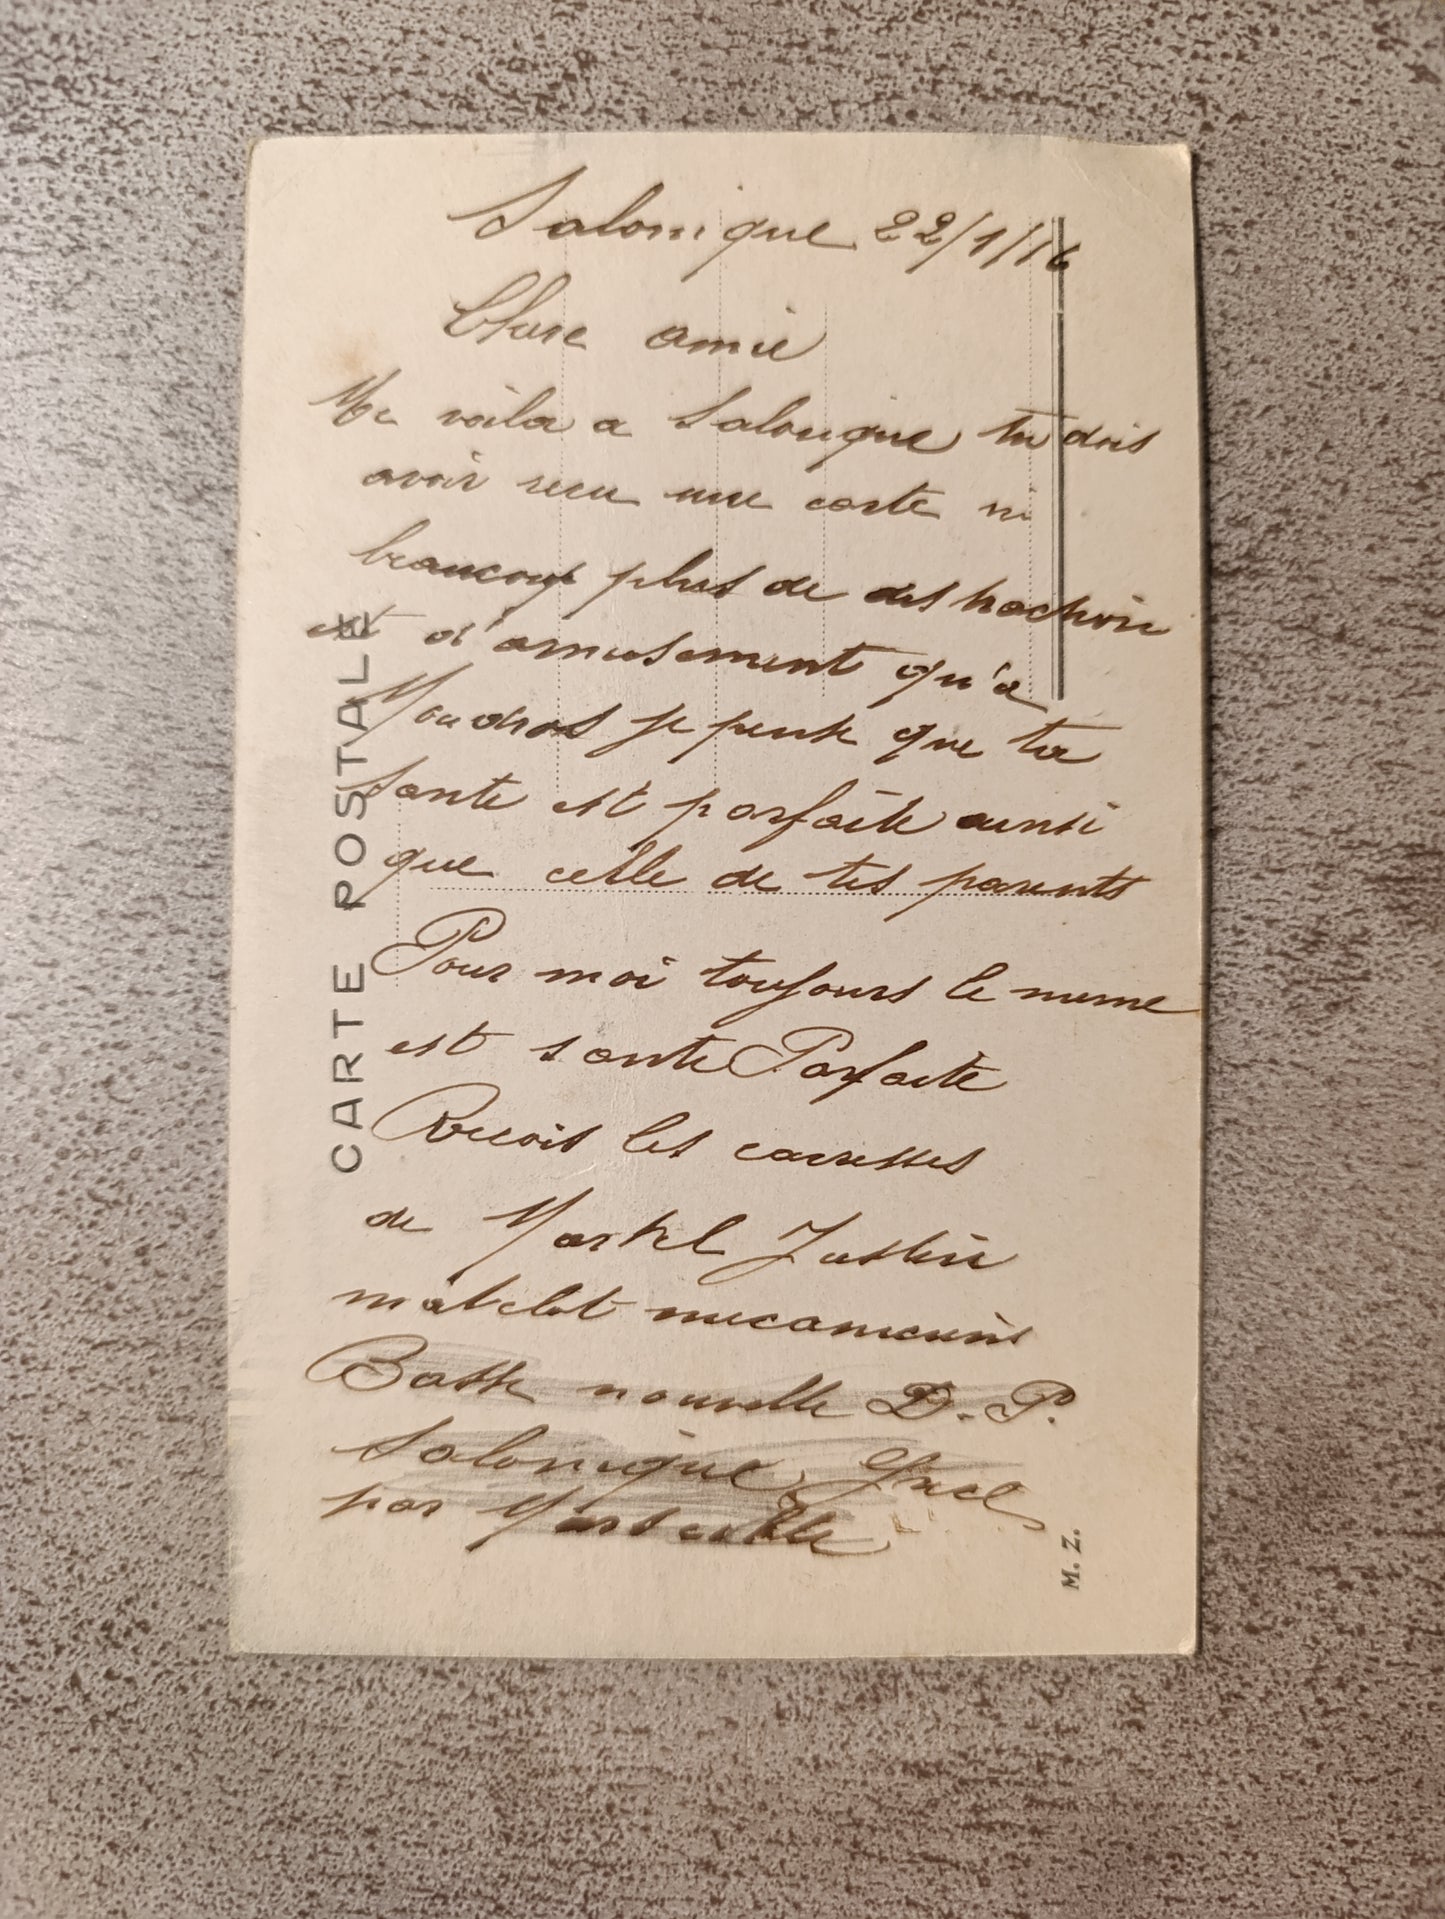 Salonique 22/1/16
Chere amie
Me voila a Salonique tu dois
avoir recu une carte
beaucoup plus de
et d'amusement qu'a
Moudros je pense que ta
sante est parfaite ainsi
que celle de tes parents
Pour moi toujours le meme
est sante Parfaite
Recois les caresses
de Martel Justin
matelot mecanicien
nouvelle D. P.
Salonique
par Marseille
CARTE POSTALE
M. Z.